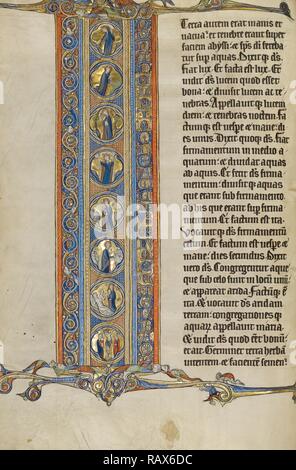 Terra autem erat inanis et
vacua: et tenebre erant super
faciem abyssi: et sps dni fereba
tur sup aquas. Dixit qz ds.
fiat lux. Et facta est lux. Et
vidit ds lucem quod esset
bona: et divisit lucem ac te
nebras. Appellavit qz lucem
diem: et tenebras noctem. fa
ctumqz est vespe et mane: di
es unus. Dixit quoqz ds. fiat
firmamentum in medio a
quarum: et dividat aquas
ab aquis. Et fecit ds firma
mentum: divisitqz aquas
que erant sub firmamento.
ab his que erant sup firma
mentum. Et factum est ita.
Vocavit qz ds firmamentum
celum. Et factum est vespe et
mane: dies secundus. Dixit
vero ds. Congregentur aque
que sub celo sunt in locum unum:
et appareat arida. factumqz est
ita. Et vocavit ds aridam
terram: congregationes qz
aquarum appellavit maria.
Et vidit ds quod esset bonum:
et ait. Germinet terra herbam
virentem et facientem semen:
alamy
Image ID: RAX6DC
www.alamy.com